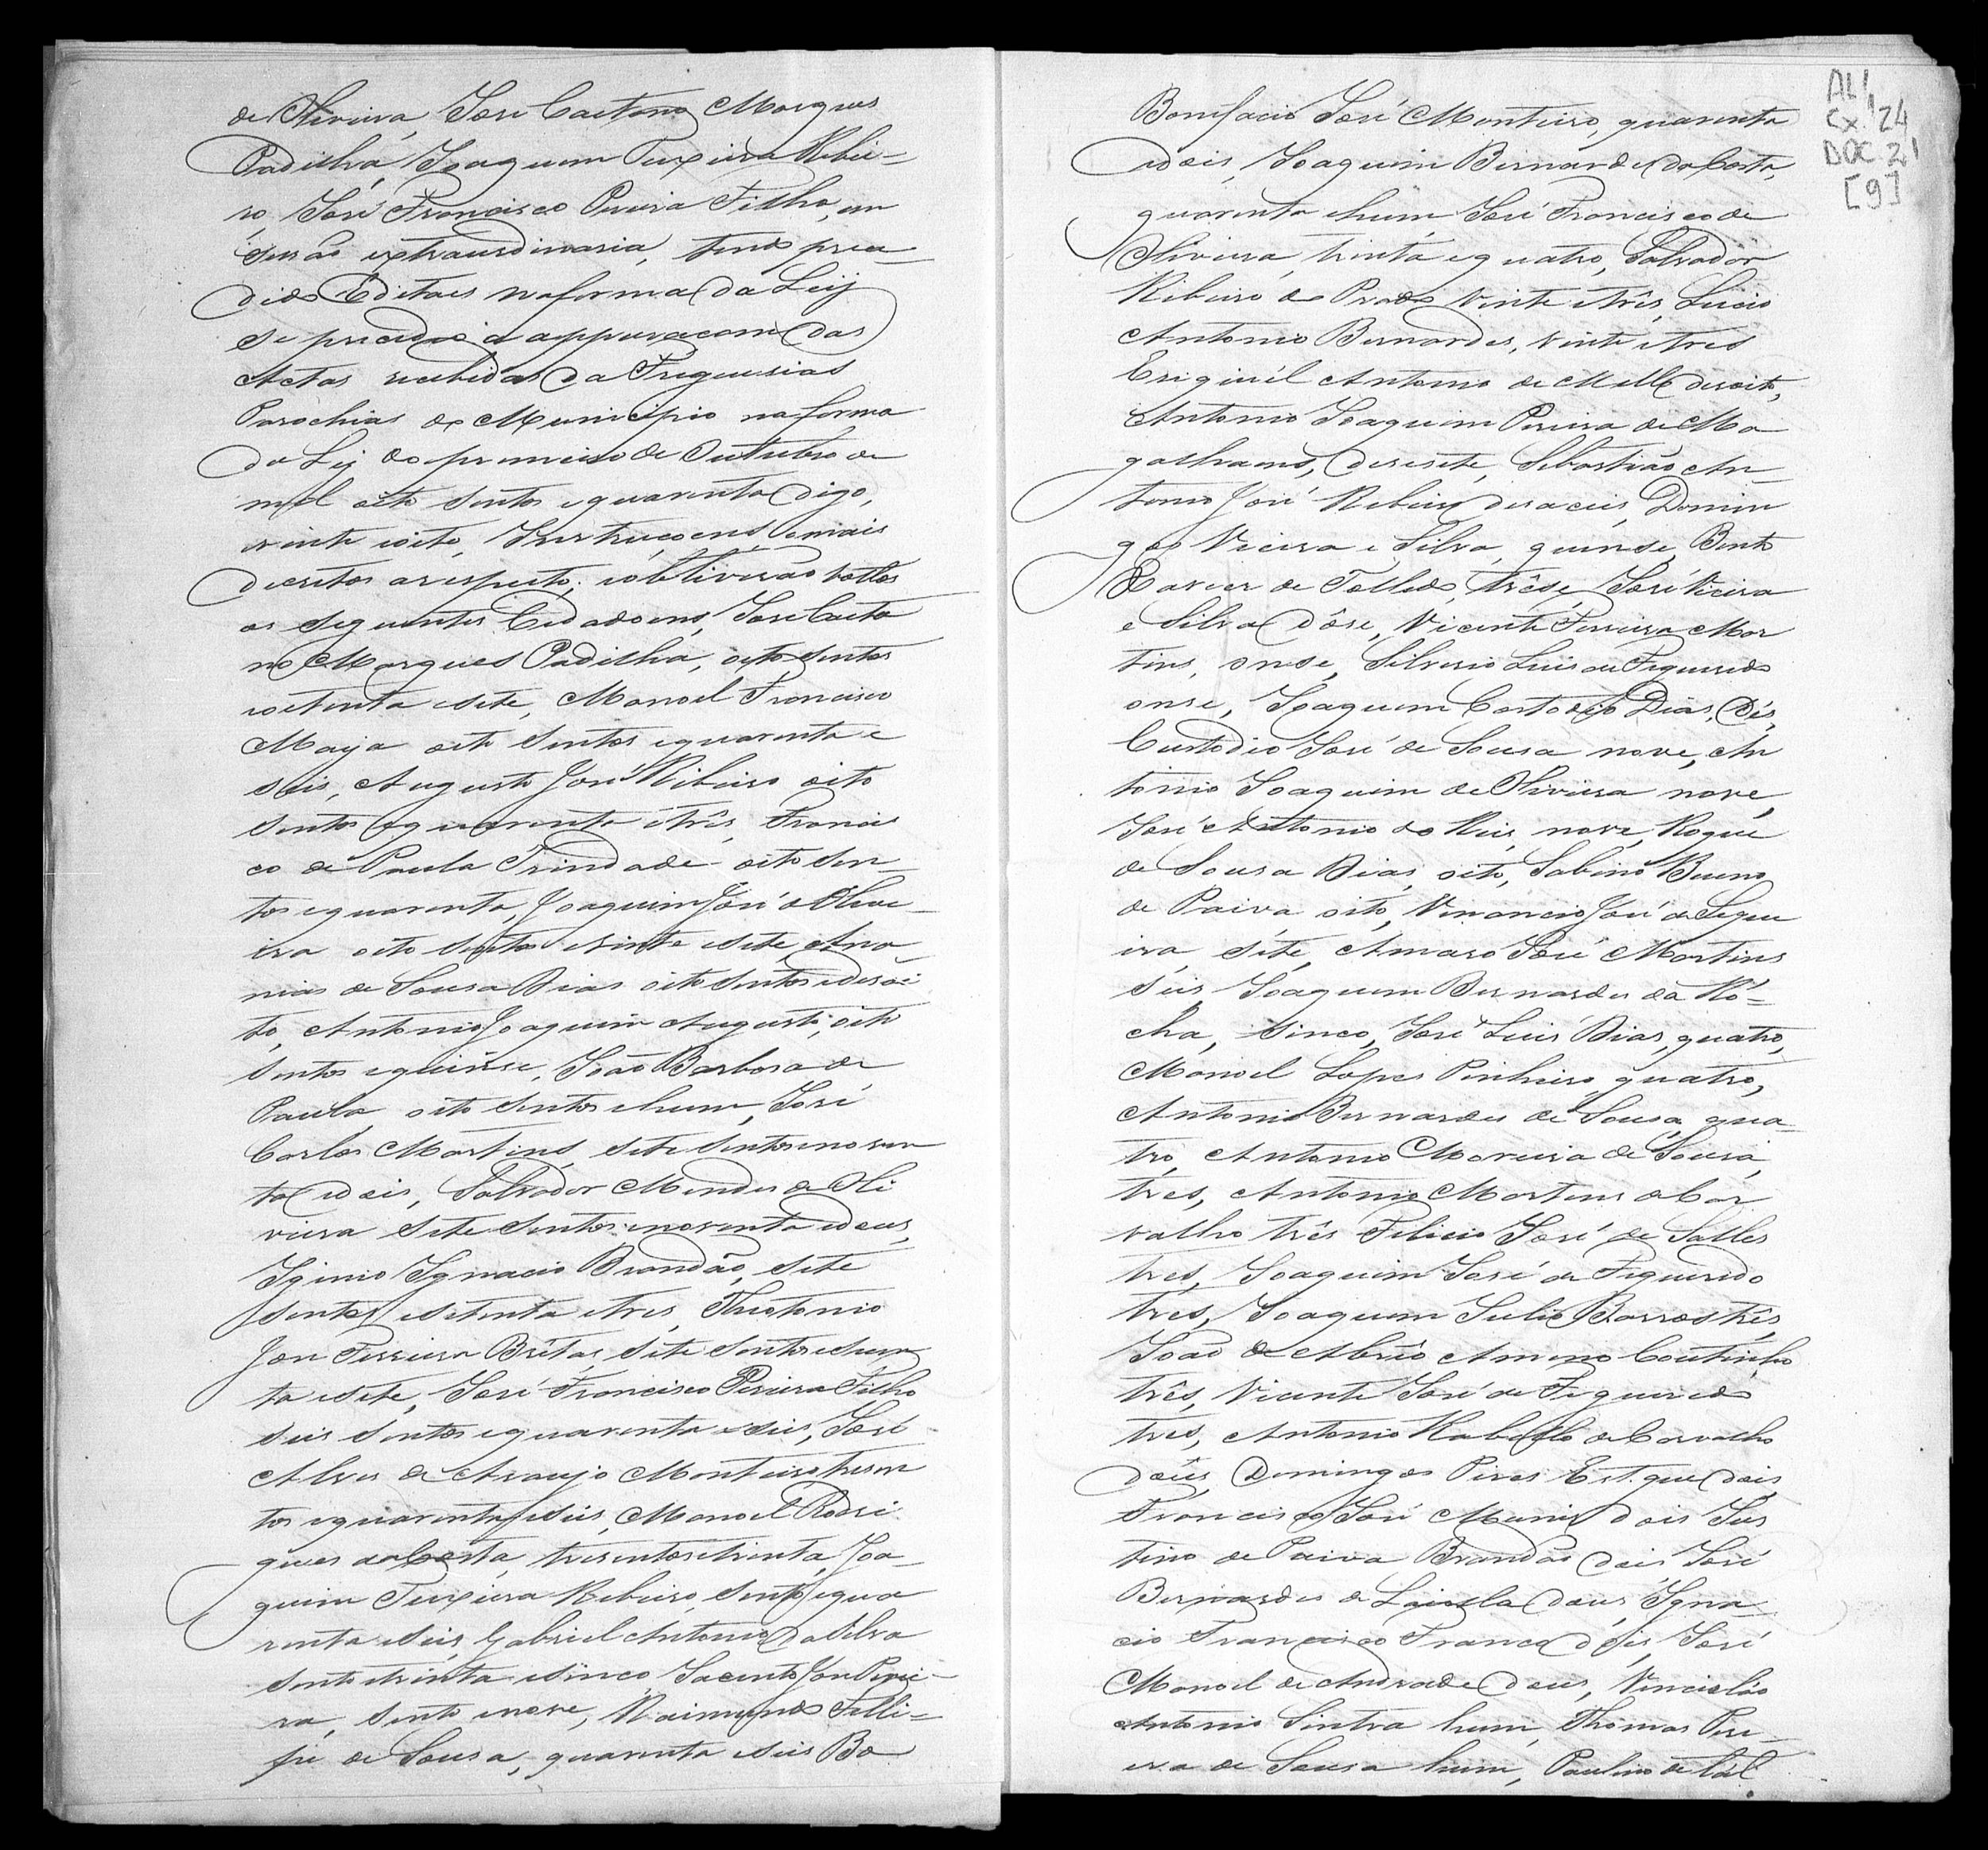 de Oliveira, José Caetano Marques
Padilha, Joaquim Teixeira Ribei-
ro, José Francisco Pereira Filho, em
sesão extraurdinaria, tendo prece-
dido Editaes na forma da Leij
se procedeo a appuraçam das
Actas recebidas da Freguesias
Parochias do Municipio na forma
da Lei do primeiro de Outubro de
mil oito sentos e quarenta digo,
vinte e oito, Instruçoens e mais
decretos a respeito; e obtiverão vottos
os seguintes Cidadoens, José Caeta
no Marques Padilha, oito sentos
e oitenta e sete, Manoel Francisco
Maya oito sentos e quarenta e
seis, Augusto José Ribeiro oito
sentos e quarenta e três, Francis
co de Paula Trindade oito sen-
tos e quarenta, Joaquim José d'Olive-
ira oito sentos e vinte e sete, Ana-
nias de Sousa Dias oito sentos e desoi
to, Antonio Joaquim Augusto, oito
sentos e quinse, João Barbosa de
Paula oito sentos e hum, José
Carlos Martins sete sentos e noven
ta e dois, Salvador Mendes de Oli
veira sete sentos e noventa e deus,
Iginio Ignacio Brandão, sete
sentos e setenta e tres, Theotonio
José Ferreira Brétas, sete sentos e sesen
ta e sete, José Francisco Pereira Filho
seis sentos e quarenta e seis, José
Alves de Araujo Monteiro tresen
tos e quarenta e seis, Manoel Rodri
gues da Costa, tresentos e trinta, Joa-
quim Teixeira Ribeiro, sento e qua
renta e seis, Gabriel Antonio da Silva
sento e trinta e sinco, Jacinto José Perei-
ra, sento e nove, Raimundo Felli-
pe de Sousa, quarenta e seis Bo
ALI
Cx. 24
DOC. 21
[9]
Bonifacio José Monteiro, quarenta
e dois, Joaquim Bernardes da Costa,
quarenta e hum José Francisco de
Oliveira, trinta e quatro, Salvador
Ribeiro do Prado vinte e três, Lucio
Antonio Bernardes, vinte e tres
Antonio de Mello desoito,
Antonio Joaquim Pereira de Ma
galhaens, desesete, Sebastião An-
tonio José Ribeiro desaceis, Domin
gos Vieira e Silva, quinse, Bento
Xavier de Tolledo, trêse, José Vieira
e Silva dôse, Vicente Ferreira Mar
tins, onse, Silverio Luis de Figueredo
onse, Joaquim Custodio Dias, dés,
Custodio José de Sousa nove, An
tonio Joaquim de Oliveira nove,
José Antonio do Reis, nove, Roque
de Sousa Dias, oito, Sabino Bueno
de Paiva oito, Venancio José de Sique
ira, sete, Amaro José Martins
seis Joaquim Bernardes da Ro-
cha, sinco, José Luis Dias, quatro,
Manoel Lopes Pinheiro, quatro,
Antonio Bernardes de Sousa, qua-
tro, Antonio Moreira de Sousa,
tres, Antonio Martins de Car
valho três Felicio José de Salles
tres, Joaquim José de Figueredo
tres, Joaquim Julio Barros três,
João de Abrêo Coutinho
três, Vicente José de Figueiredo
tres, Antonio Rabello de Carvalho
deûs, Domingos Pires dois,
Francisco José Muniz dois Jus
tino de Paiva Brandão dois, José
Bernardes de deus, Igna-
cio Francisco Franco dois, José
Manoel de Andrade deus, Vencislão
Antonio Sintra hum, Thomas Pere-
ira de Sousa hum, Paulino de tál